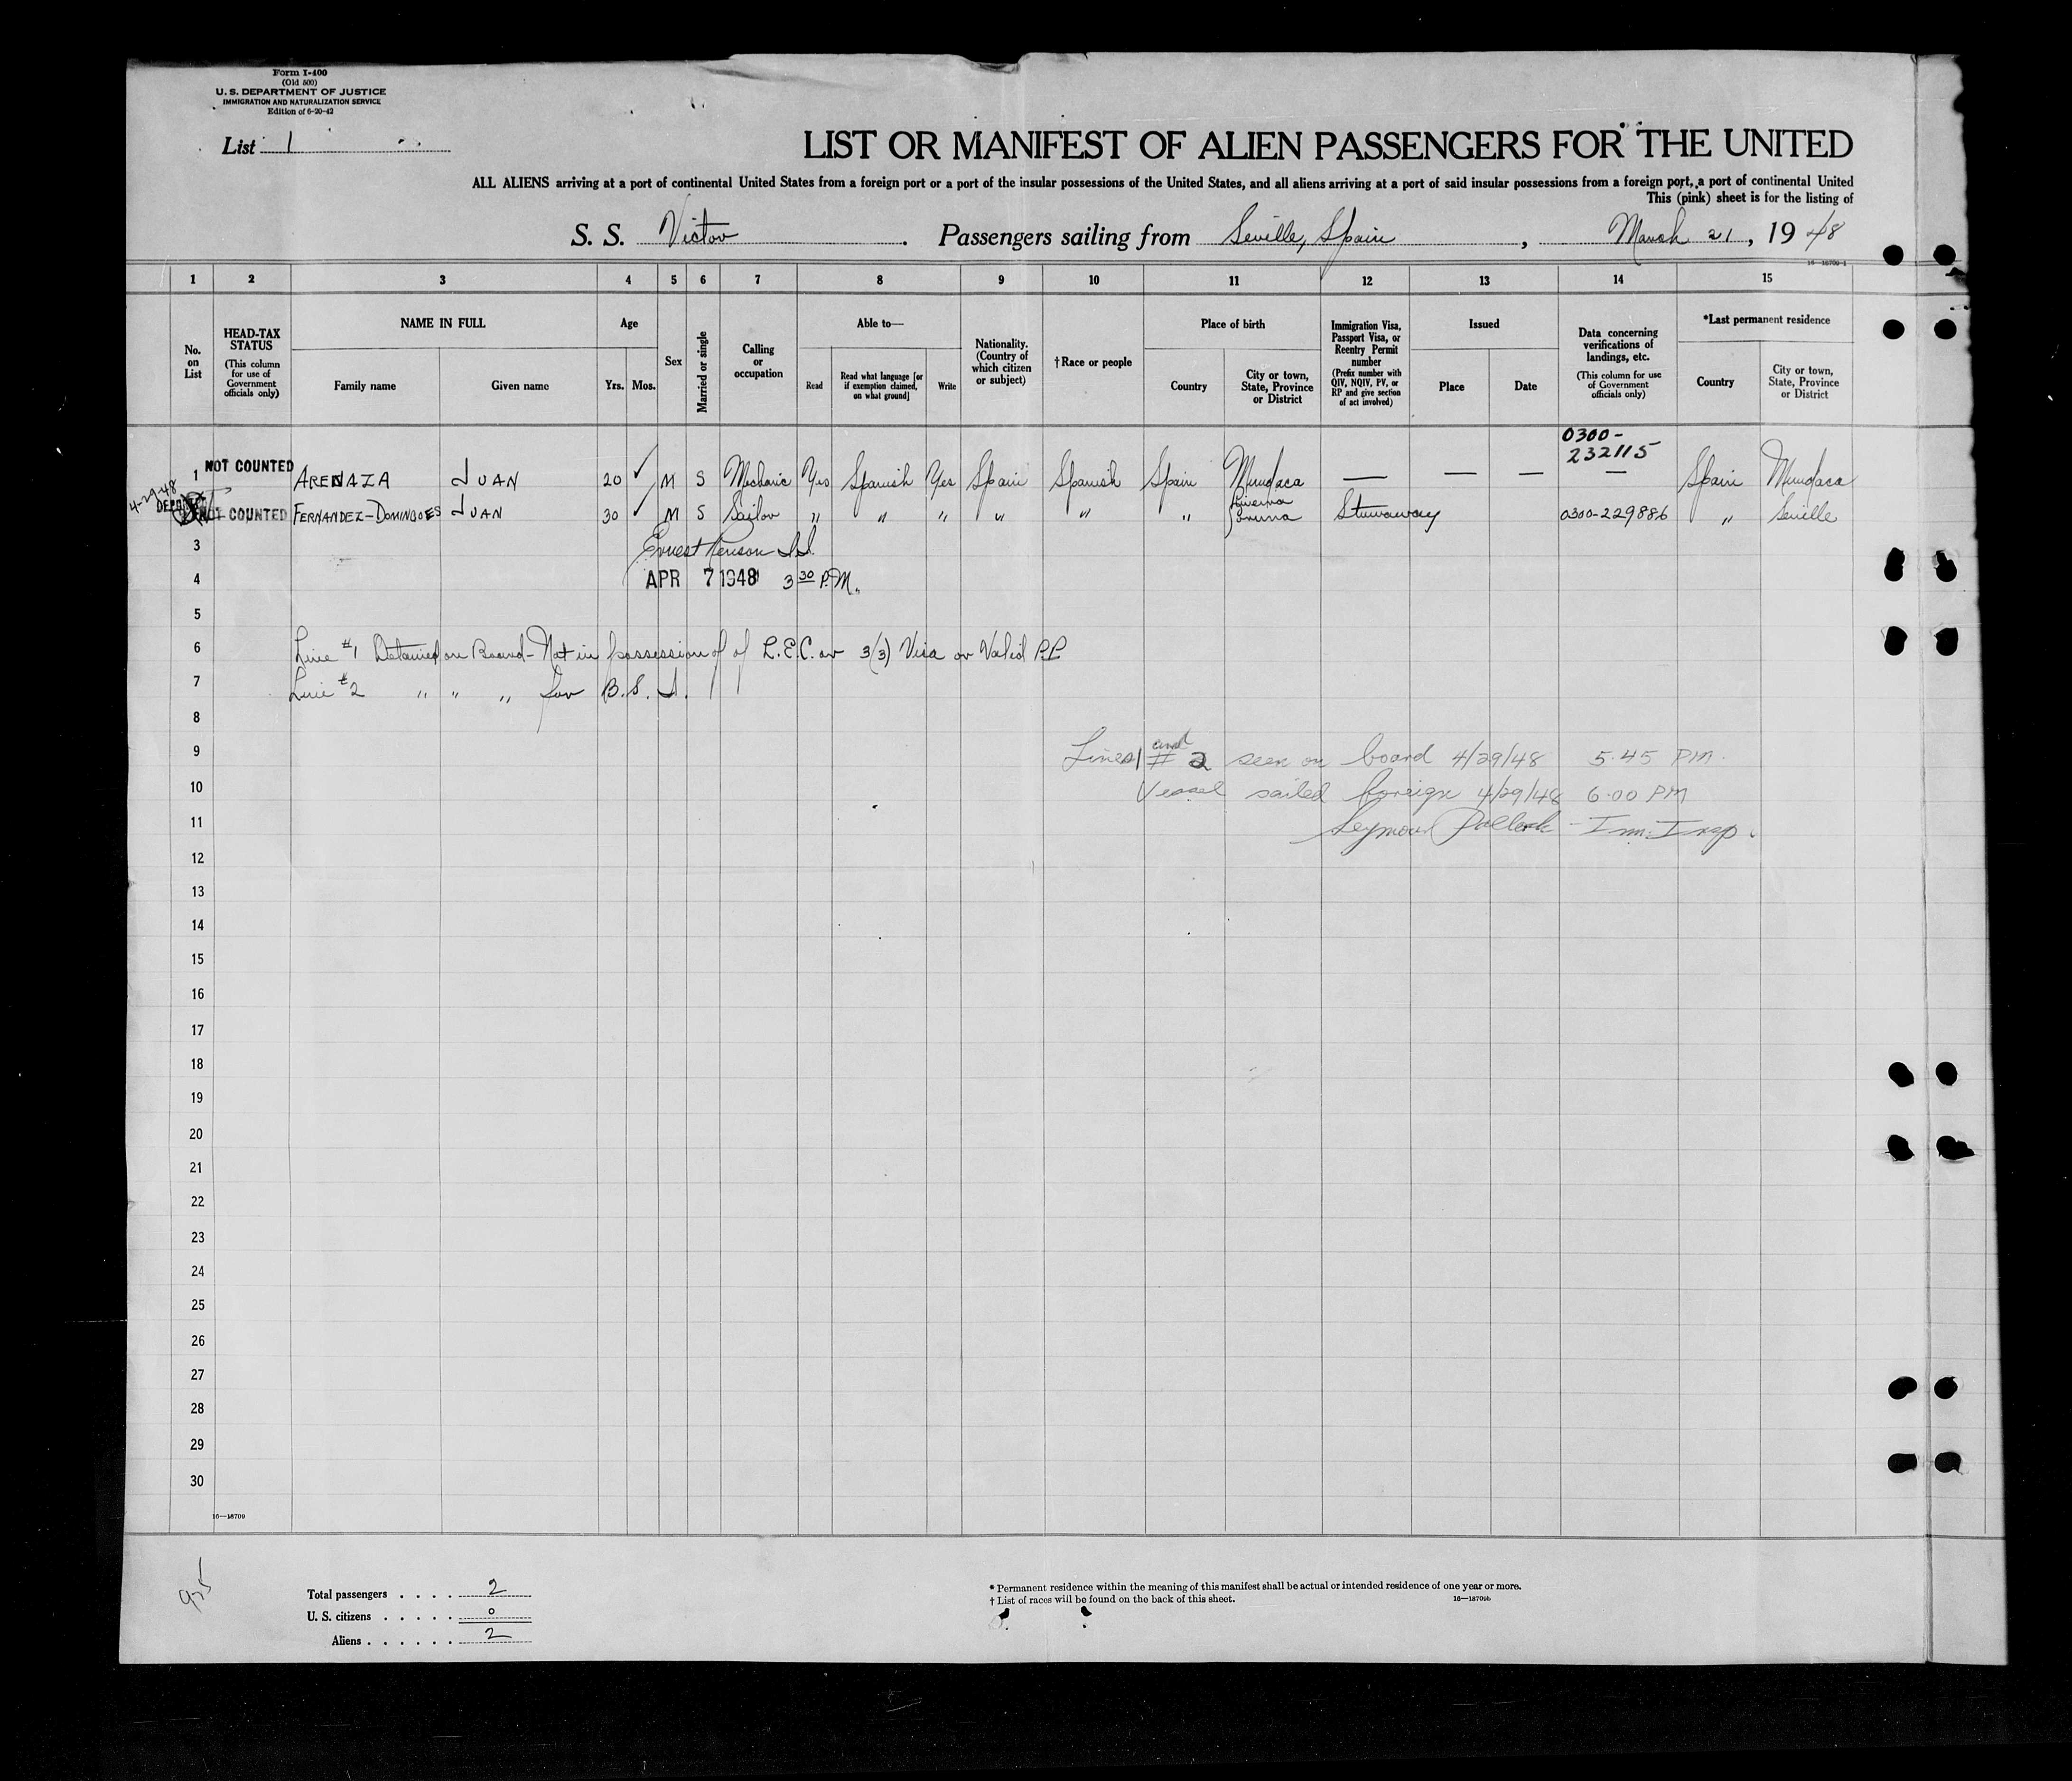 Form I-400
(Old 500)
U. S. DEPARTMENT OF JUSTICE
IMMIGRATION AND NATURALIZATION SERVICE
Edition of 6-20-42
List 1
LIST OR MANIFEST OF ALIEN PASSENGERS FOR THE UNITED
ALL ALIENS arriving at a port of continental United States from a foreign port or a port of the insular possessions of the United States, and all aliens arriving at a port of said insular possessions from a foreign port, a port of continental United
This (pink) sheet is for the listing of
S. S. Victor . Passengers sailing from Seville, Spain , March 21, 1948
16—18709-1
1 2 3 4 5 6 7 8 9 10 11 12 13 14 15
No. on List
HEAD-TAX STATUS (This column for use of Government officials only)
NAME IN FULL
Family name Given name
Age
Yrs. Mos.
Sex
Married or single
Calling or occupation
Able to—
Read
Read what language [or if exemption claimed, on what ground]
Write
Nationality. (Country of which citizen or subject)
†Race or people
Place of birth
Country
City or town, State, Province or District
Immigration Visa, Passport Visa, or Reentry Permit number (Prefix number with QIV, NQIV, PV, or RP and give section of act involved)
Issued
Place Date
Data concerning verifications of landings, etc. (This column for use of Government officials only)
*Last permanent residence
Country
City or town, State, Province or District
0300-
232115
1 NOT COUNTED ARENAZA JUAN 20 ✓ M S Mechanic Yes Spanish Yes Spain Spanish Spain Mundaca — — — — Spain Mundaca
4-29-48
NOT COUNTED FERNANDEZ-DOMINGOES JUAN 30 ✓ M S Sailor " " " " " " Coruna Stowaway 0300-229886 " Seville
3 Ernest
4 APR 7 1948 3 30 P.M.
5
6 Line #1 Detained on Board - Not in possession of of L.E.C. or 3(3) Visa or Valid P.P.
7 Line #2 " " " for B.S.I.
8
9 Lines 1 and # 2 seen on board 4/29/48 5:45 PM.
10 Vessel sailed foreign 4/29/48 6:00 PM
11 Seymour Pollack - Imm. Insp.
12
13
14
15
16
17
18
19
20
21
22
23
24
25
26
27
28
29
30
16—18709
Total passengers . . . . 2
U. S. citizens . . . . . 0
Aliens . . . . . . 2
* Permanent residence within the meaning of this manifest shall be actual or intended residence of one year or more.
† List of races will be found on the back of this sheet.
16—18709b